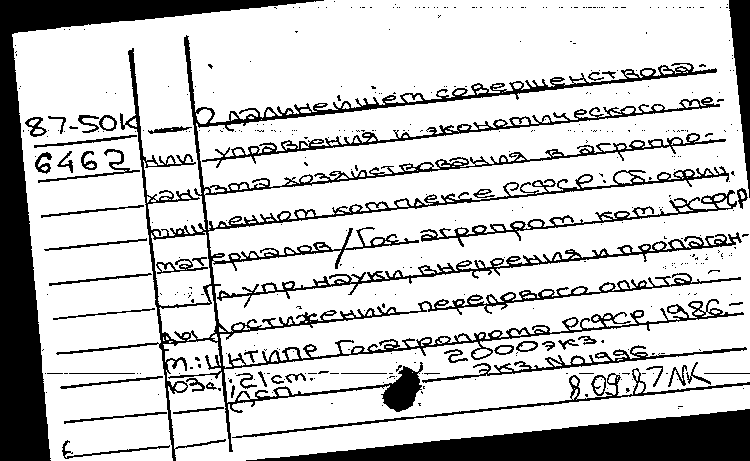 О дальнейшем совершенствова-
87-50К
6462 нии управления и экономического ме-
ханизма хозяйствования в агропро-
мышленном комплексе РСФСР: Сб. офиц.
материалов / Гос. агропром. ком. РСФСР
. Гл. упр. науки, внедрения и пропаган-
ды достижений передового опыта. -
М.: ЦНТИПР Госагропрома РСФСР, 1986.-
21 см. - 2000 экз.
ДСП. экз. N01996
8.09.87 ЛК